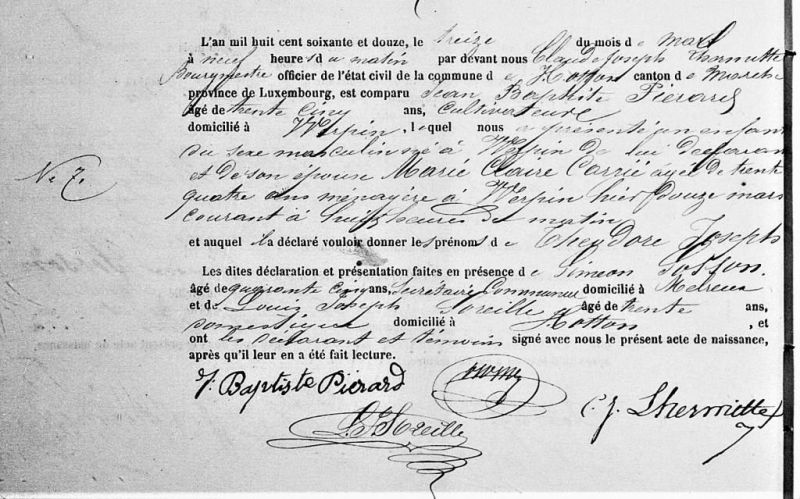 L'an mil huit cent soixante et douze, le treize du mois de mars
à neuf heures du matin par devant nous Claude Joseph Lhermitte
Bourgmestre officier de l'état civil de la commune de Hotton canton de Marche
province de Luxembourg, est comparu Jean Baptiste Piérard
âgé de trente cinq ans, cultivateur
domicilié à Werpin, lequel nous a présenté un enfant
du sexe masculin né à Werpin de lui déclarant
et de son épouse Marie Claire Carrié agée de trente
N. 7.
quatre ans ménagère à Werpin hier douze mars
courant à huit heures du matin
et auquel il a déclaré vouloir donner les prénoms de Theodore Joseph
Les dites déclaration et présentation faites en présence de Simeon Sosson.
âgé de quarante cinq ans, Secrétaire Communal domicilié à Melreux
et de Louis Joseph Soreille âgé de trente ans,
domestique domicilié à Hotton, et
ont les déclarant et témoins signé avec nous le présent acte de naissance,
après qu'il leur en a été fait lecture.
J. Baptiste Piérard
L. J. Soreille
C. J. Lhermitte